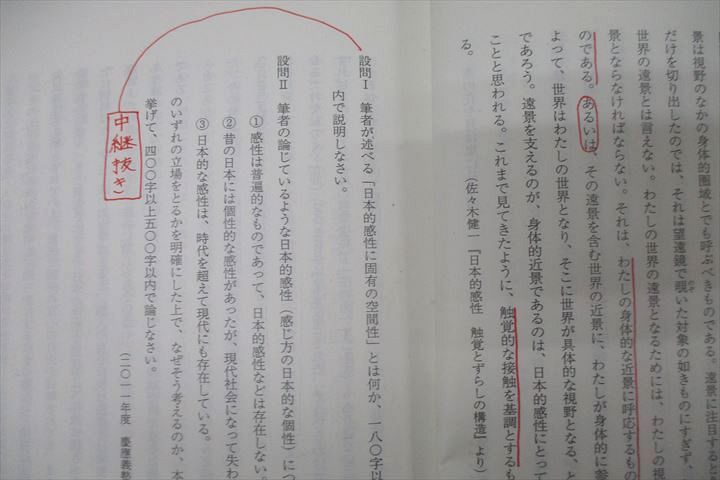 景は視野のなかの身体的圏域とでも呼ぶべきものである。遠景に注目すると
だけを切り出したのでは、それは望遠鏡で覗いた対象の如きものにすぎず、
世界の遠景とは言えない。わたしの世界の遠景となるためには、わたしの視
景とならなければならない。それは、わたしの身体的な近景に呼応するもの
のである。あるいは、その遠景を含む世界の近景に、わたしが身体的に参
よって、世界はわたしの世界となり、そこに世界が具体的な視野となる、と
であろう。遠景を支えるのが、身体的近景であるのは、日本的感性にとって
ことと思われる。これまで見てきたように、触覚的な接触を基調とするも
る。
(佐々木健一『日本的感性 触覚とずらしの構造』より)
設問Ⅰ 筆者が述べる「日本的感性に固有の空間性」とは何か、一八〇字以
内で説明しなさい。
設問Ⅱ 筆者の論じているような日本的感性(感じ方の日本的な個性)につ
① 感性は普遍的なものであって、日本的感性などは存在しない。
② 昔の日本には個性的な感性があったが、現代社会になって失わ
③ 日本的な感性は、時代を超えて現代にも存在している。
のいずれの立場をとるかを明確にした上で、なぜそう考えるのか、本
挙げて、四〇〇字以上五〇〇字以内で論じなさい。
(二〇一一年度 慶應義塾
中継抜き